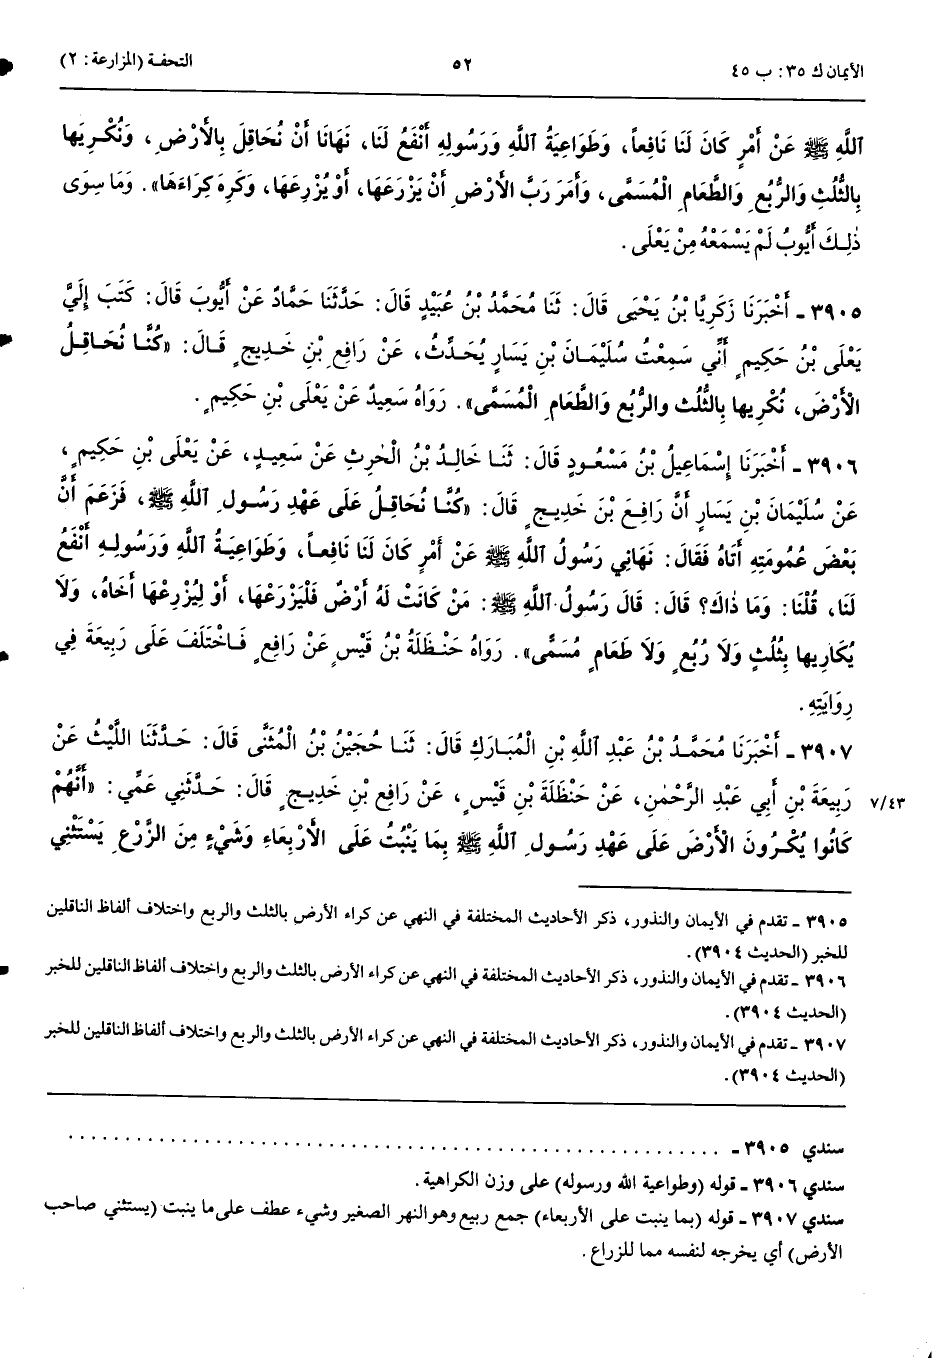 الأيمان ك ٣٥: ب ٤٥
٥٢
التحفة (المزارعة: ٢)
ٱللَّهِ ﷺ عَنْ أَمْرٍ كَانَ لَنَا نَافِعاً، وَطَوَاعِيَةُ ٱللَّهِ وَرَسُولِهِ أَنْفَعُ لَنَا، نَهَانَا أَنْ نُحَاقِلَ بِالأَرْضِ، وَنُكْرِيَها
بِالثُّلُثِ وَالرُّبُعِ وَالطَّعَامِ الْمُسَمَّى، وَأَمَرَ رَبَّ الأَرْضِ أَنْ يَزْرَعَهَا، أَوْ يُزْرِعَهَا، وَكَرِهَ كِرَاءَهَا». وَمَا سِوَى
ذٰلِكَ أَيُّوبُ لَمْ يَسْمَعْهُ مِنْ يَعْلَى.
٣٩٠٥ - أَخْبَرَنَا زَكَرِيَّا بْنُ يَحْيَى قَالَ: ثَنَا مُحَمَّدُ بْنُ عُبَيْدٍ قَالَ: حَدَّثَنَا حَمَّادٌ عَنْ أَيُّوبَ قَالَ: كَتَبَ إِلَيَّ
يَعْلَى بْنُ حَكِيمٍ أَنِّي سَمِعْتُ سُلَيْمَانَ بْنِ يَسَارٍ يُحَدِّثُ، عَنْ رَافِعِ بْنِ خَدِيجٍ قَالَ: «كُنَّا نُحَاقِلُ
الأَرْضَ، نُكْرِيها بِالثُّلُث والرُّبُعِ وَالطَّعَامِ الْمُسَمَّى». رَوَاهُ سَعِيدٌ عَنْ يَعْلَى بْنِ حَكِيمٍ.
٣٩٠٦ - أَخْبَرَنَا إِسْمَاعِيلُ بْنُ مَسْعُودٍ قَالَ: ثَنَا خَالِدُ بْنُ الْحٰرِثِ عَنْ سَعِيدٍ، عَنْ يَعْلَى بْنِ حَكِيمٍ،
عَنْ سُلَيْمَانَ بْنِ يَسَارٍ أَنَّ رَافِعَ بْنَ خَدِيجٍ قَالَ: «كُنَّا نُحَاقِلُ عَلَى عَهْدِ رَسُولِ ٱللَّهِ ﷺ، فَزَعَمَ أَنَّ
بَعْضَ عُمُومَتِهِ أَتَاهُ فَقَالَ: نَهَانِي رَسُولُ ٱللَّهِ ﷺ عَنْ أَمْرٍ كَانَ لَنَا نَافِعاً، وَطَوَاعِيَةُ ٱللَّهِ وَرَسُولِهِ أَنْفَعُ
لَنَا، قُلْنَا: وَمَا ذَاكَ؟ قَالَ: قَالَ رَسُولُ ٱللَّهِ ﷺ: مَنْ كَانَتْ لَهُ أَرْضٌ فَلْيَزْرَعْهَا، أَوْ لِيُزْرِعْهَا أَخَاهُ، وَلَا
يُكَارِيها بِثُلُثٍ وَلَا رُبُعٍ وَلَا طَعَامٍ مُسَمًّى». رَوَاهُ حَنْظَلَةُ بْنُ قَيْسٍ عَنْ رَافِعٍ فَاخْتَلَفَ عَلَى رَبِيعَةَ فِي
رِوَايَتِهِ.
٣٩٠٧ - أَخْبَرَنَا مُحَمَّدُ بْنُ عَبْدِ ٱللَّهِ بْنِ الْمُبَارَكِ قَالَ: ثَنَا حُجَيْنُ بْنُ الْمُثَنَّى قَالَ: حَدَّثَنَا اللَّيْثُ عَنْ
٧/٤٣ رَبِيعَةَ بْنِ أَبِي عَبْدِ الرَّحْمٰنِ، عَنْ حَنْظَلَةَ بْنِ قَيْسٍ، عَنْ رَافِعِ بْنِ خَدِيجٍ قَالَ: حَدَّثَنِي عَمِّي: «أَنَّهُمْ
كَانُوا يُكْرُونَ الْأَرْضَ عَلَى عَهْدِ رَسُولِ ٱللَّهِ ﷺ بِمَا يَنْبُتُ عَلَى الْأَرْبِعَاءِ وَشَيْءٍ مِنَ الزَّرْعِ يَسْتَثْنِي
٣٩٠٥ - تقدم في الأيمان والنذور، ذكر الأحاديث المختلفة في النهي عن كراء الأرض بالثلث والربع واختلاف ألفاظ الناقلين
للخبر (الحديث ٣٩٠٤).
٣٩٠٦ - تقدم في الأيمان والنذور، ذكر الأحاديث المختلفة في النهي عن كراء الأرض بالثلث والربع واختلاف ألفاظ الناقلين للخبر
(الحديث ٣٩٠٤).
٣٩٠٧ - تقدم في الأيمان والنذور، ذكر الأحاديث المختلفة في النهي عن كراء الأرض بالثلث والربع واختلاف ألفاظ الناقلين للخبر
(الحديث ٣٩٠٤).
سندي ٣٩٠٥ - . . . . . . . . . . . . . . . . . . . . . . . . . . . . . . . . . . . . . . . .
سندي ٣٩٠٦ - قوله (وطواعية الله ورسوله) على وزن الكراهية.
سندي ٣٩٠٧ - قوله (بما ينبت على الأربعاء) جمع ربيع وهو النهر الصغير وشيء عطف على ما ينبت (يستثني صاحب
الأرض) أي يخرجه لنفسه مما للزراع.